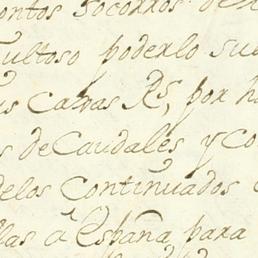 ontos socorros
ultoso poderlo
Caxas Rs, por
de Caudales y co
delos Continuados
llas a España para